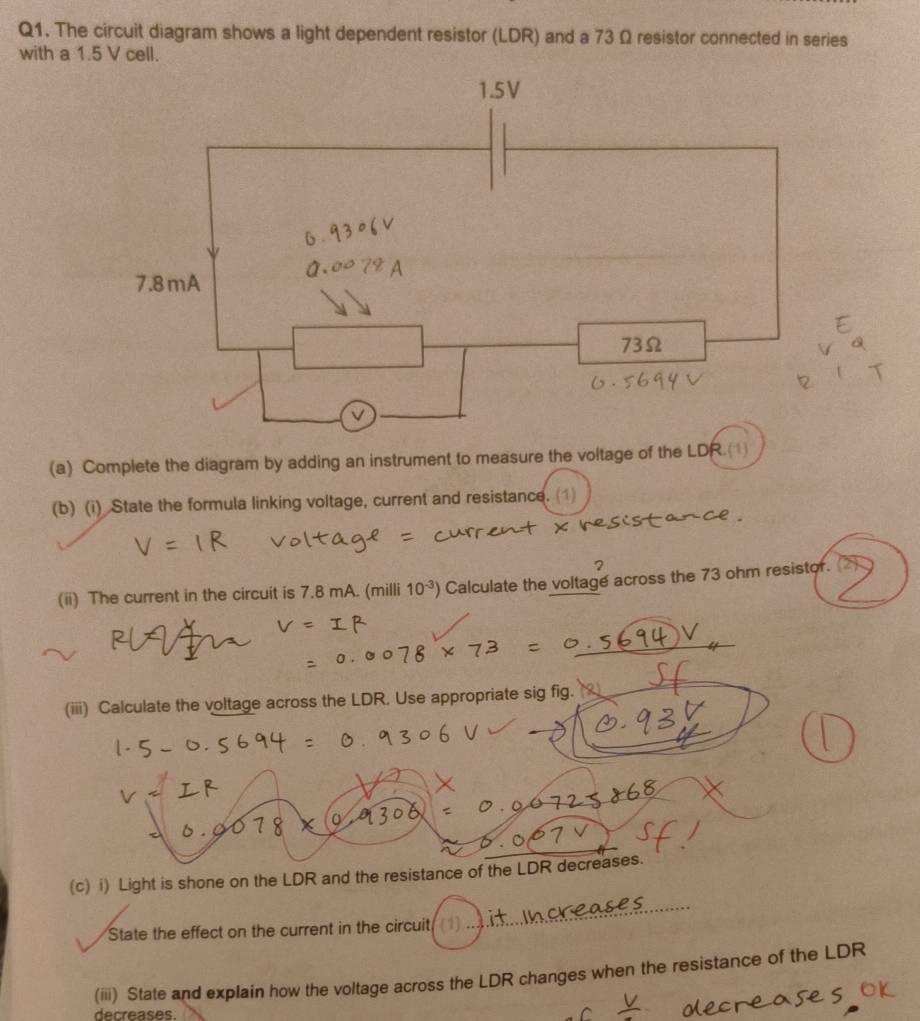 Q1. The circuit diagram shows a light dependent resistor (LDR) and a 73 Ω resistor connected in series
with a 1.5 V cell.
1.5V
0.9306V
0.0078 A
7.8mA
73Ω
0.5694 V
E
V Q
R I T
V
(a) Complete the diagram by adding an instrument to measure the voltage of the LDR. (1)
(b) (i) State the formula linking voltage, current and resistance. (1)
V = IR voltage = current × resistance.
?
(ii) The current in the circuit is 7.8 mA. (milli 10⁻³) Calculate the voltage across the 73 ohm resistor. (2)
2
V = IR
= 0.0078 × 73 = 0.5694 V
sf
(iii) Calculate the voltage across the LDR. Use appropriate sig fig. (2)
1.5 - 0.5694 = 0.9306 V → 0.93V
1
V = IR
V?
= 0.0078 × 0.9306 = 0.00725868
≈ 0.007V sf!
(c) i) Light is shone on the LDR and the resistance of the LDR decreases.
State the effect on the current in the circuit (1) ...it increases........
(iii) State and explain how the voltage across the LDR changes when the resistance of the LDR
decreases.
V decreases. OK